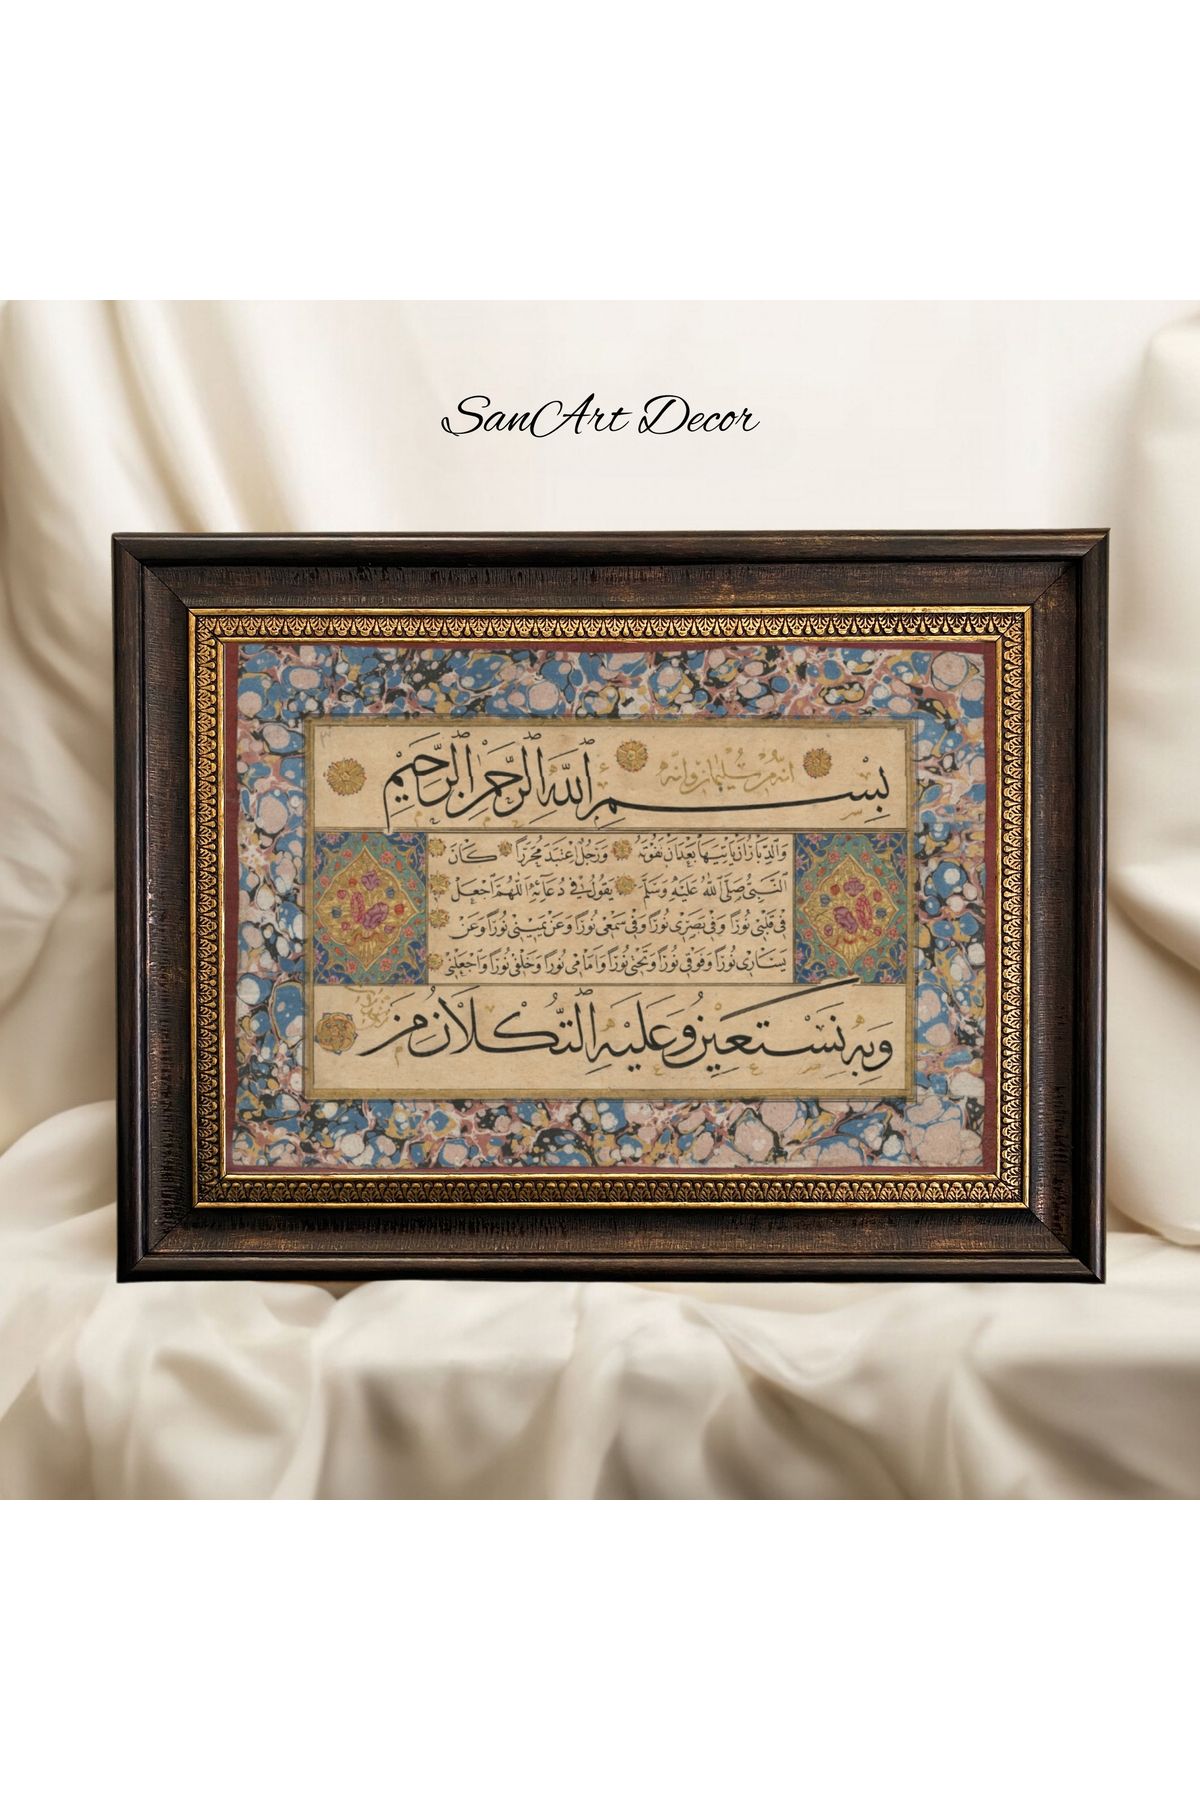 SanArt Decor
بِسْمِ اللّٰهِ الرَّحْمٰنِ الرَّحِيمِ
انّه من سليمان وانّه
وَالدَّبَارَانِ يَأْتِيهَا بَعْدَ أَنْ تَفُوتَهُ وَرَجُلٌ اعْتَبَدَ مُحَرَّرًا كَانَ
النَّبِيُّ صَلَّى اللهُ عَلَيْهِ وَسَلَّمَ يَقُولُ فِي دُعَائِهِ اللّٰهُمَّ اجْعَلْ
فِي قَلْبِي نُورًا وَفِي بَصَرِي نُورًا وَفِي سَمْعِي نُورًا وَعَنْ يَمِينِي نُورًا وَعَنْ
يَسَارِي نُورًا وَفَوْقِي نُورًا وَتَحْتِي نُورًا وَأَمَامِي نُورًا وَخَلْفِي نُورًا وَاجْعَلْنِي
وَبِهِ نَسْتَعِينُ وَعَلَيْهِ التُّكْلَانُ مِنْ